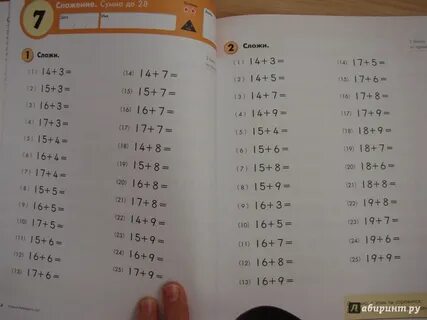 7
Сложение. Сумма до 28
1 Сложи.
(1) 14+3=
(2) 15+3=
(3) 16+3=
(4) 17+3=
(5) 15+4=
(6) 16+4=
(7) 17+4=
(8) 15+5=
(9) 16+5=
(10) 17+5=
(11) 15+6=
(12) 16+6=
(13) 17+6=
(14) 14+7=
(15) 15+7=
(16) 16+7=
(17) 17+7=
(18) 14+8=
(19) 15+8=
(20) 16+8=
(21) 17+8=
(22) 14+9=
(23) 15+9=
(24) 16+9=
(25) 17+9=
2 Сложи.
(1) 14+3=
(2) 14+5=
(3) 14+7=
(4) 14+9=
(5) 15+4=
(6) 15+6=
(7) 15+8=
(8) 15+9=
(9) 16+3=
(10) 16+5=
(11) 16+6=
(12) 16+7=
(13) 16+8=
(14) 17+5=
(15) 17+6=
(16) 17+8=
(17) 17+9=
(18) 18+4=
(19) 18+7=
(20) 18+6=
(21) 18+8=
(22) 18+9=
(23) 19+6=
(24) 19+7=
(25) 19+9=
Лабиринт.ру